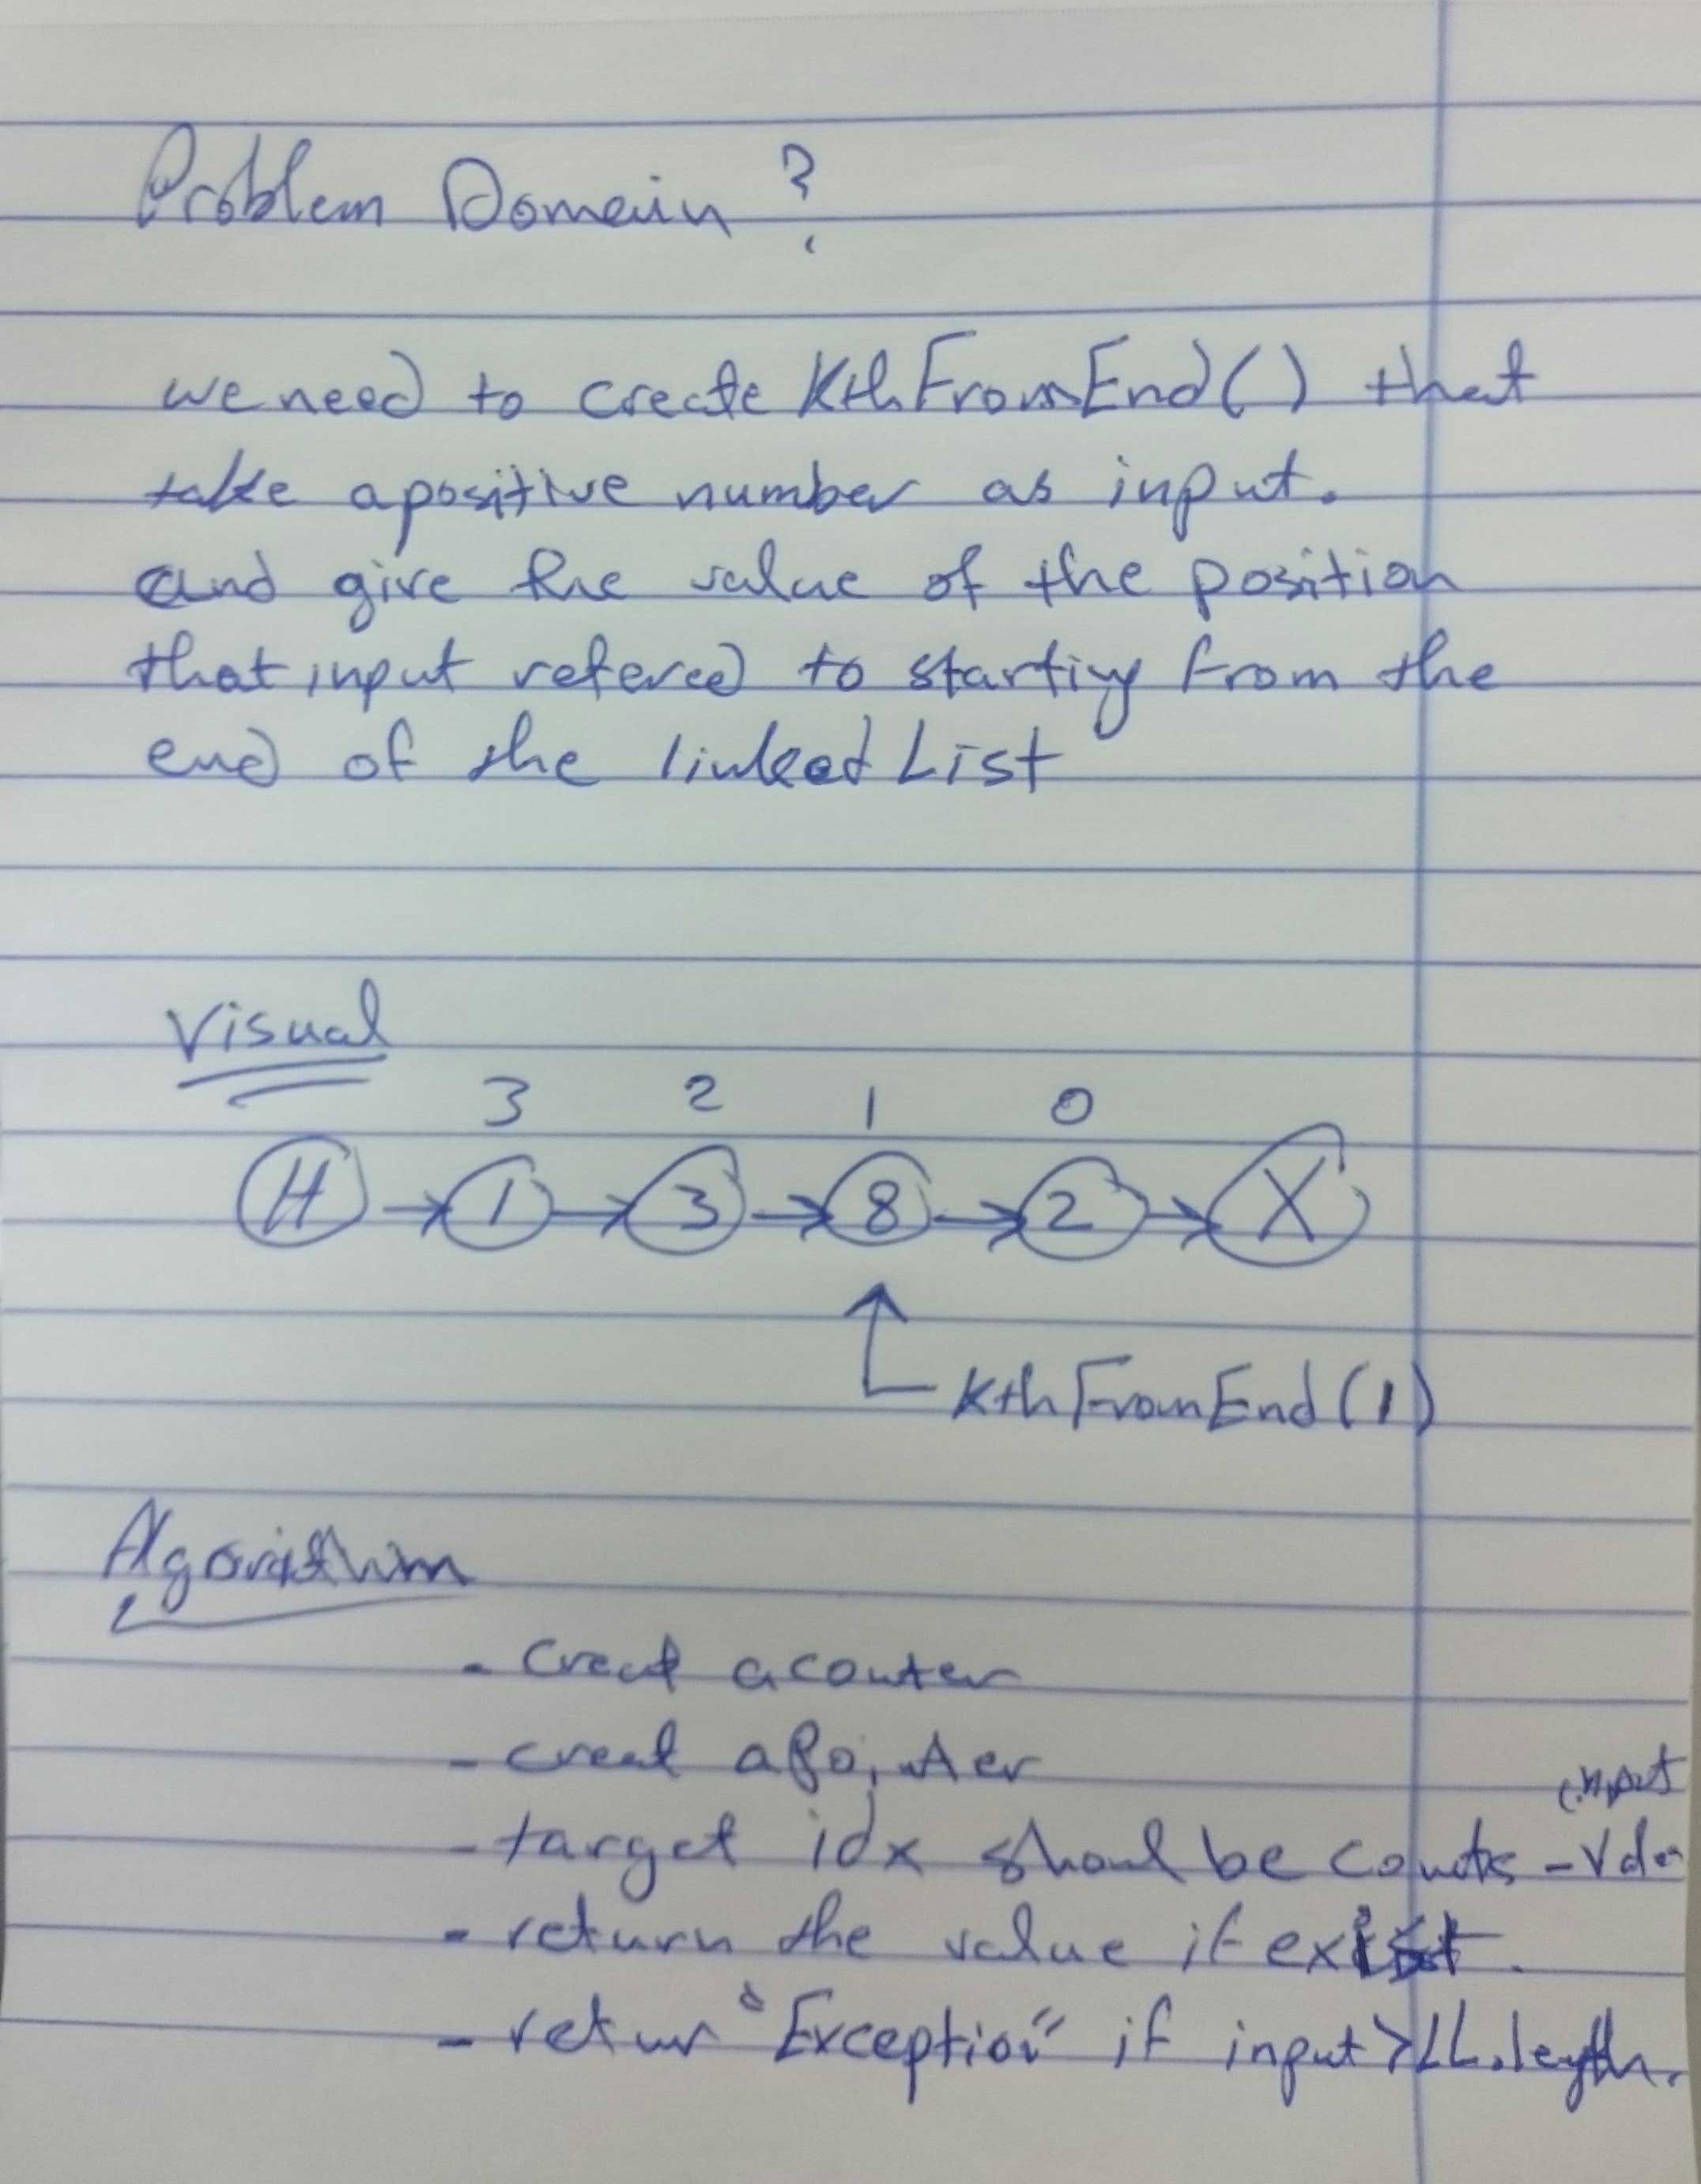 Problem Domain ?
we need to create KthFromEnd() that
take a positive number as input.
and give the value of the position
that input refered to starting from the
end of the linked List
Visual
3 2 1 0
H → 1 → 3 → 8 → 2 → X
KthFromEnd(1)
Algorithm
- creat a couter
- creat a Pointer
input
- target idx shoul be counts -
- return the value if exist.
- retur "Exception" if input > LL.length.